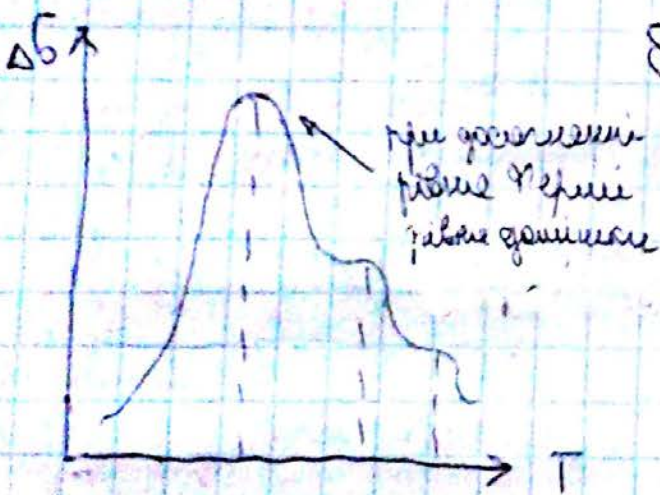 Δσ
при досягненні
рівня Фермі
рівня домішок
T